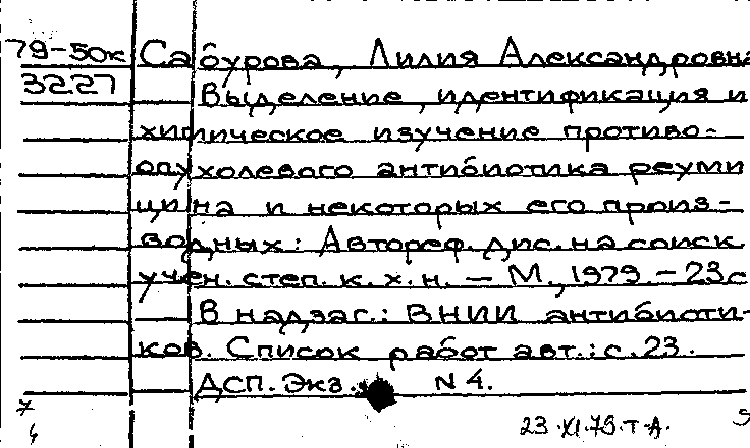 79-50к Сабурова, Лилия Александровна
3227 Выделение, идентификация и
химическое изучение противо-
опухолевого антибиотика реуми
цина и некоторых его произ-
водных: Автореф. дис. на соиск
учен. степ. к. х. н. — М., 1979. — 23 с
В надзаг.: ВНИИ антибиоти-
ков. Список работ авт.: с. 23.
ДСП. Экз. N 4.
23.XI.79.Т-А.